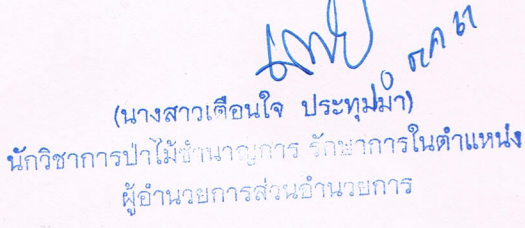 (นางสาวเตือนใจ ประทุมมา)
นักวิชาการป่าไม้ชำนาญการ รักษาการในตำแหน่ง
ผู้อำนวยการส่วนอำนวยการ